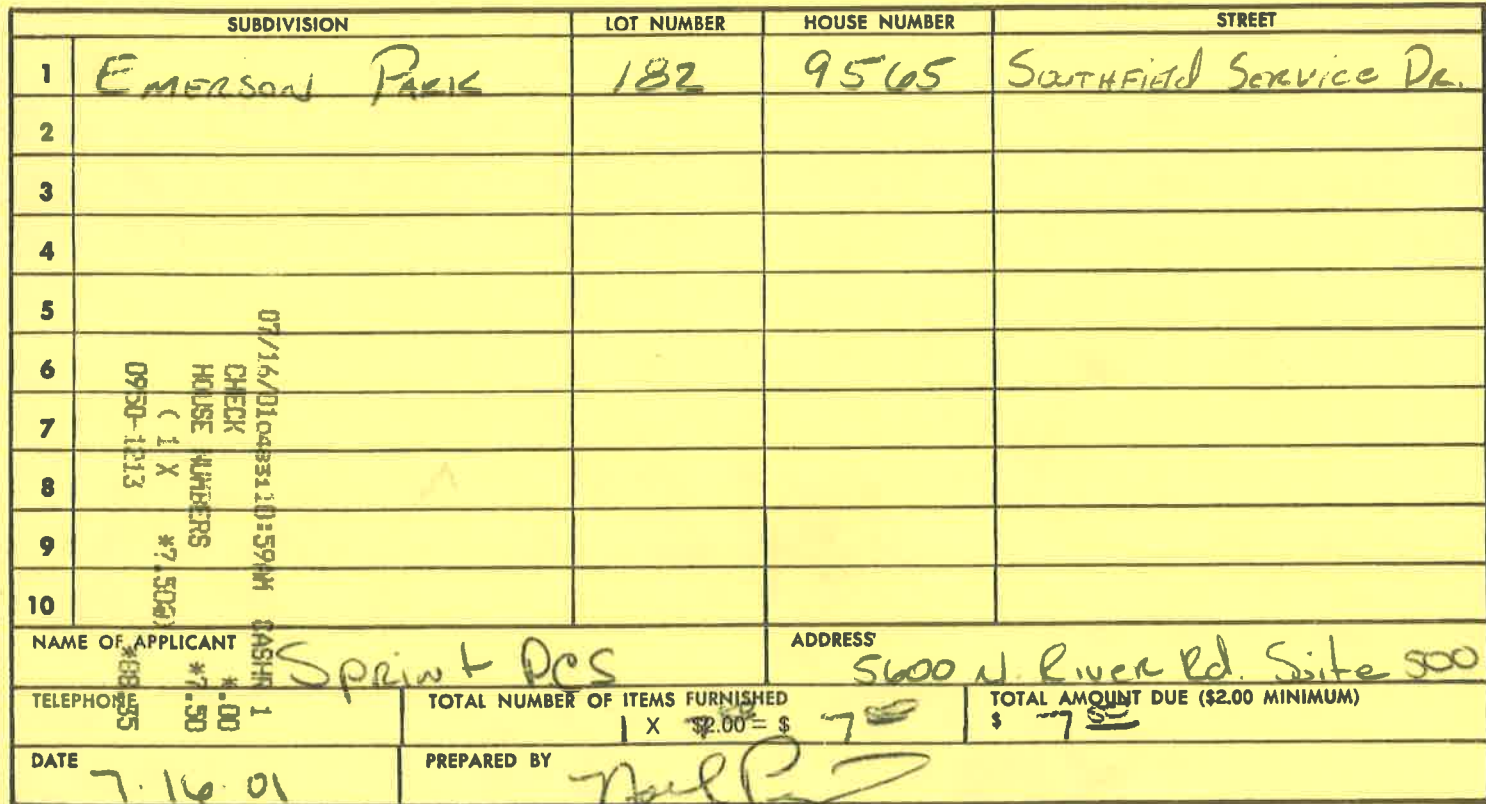 SUBDIVISION LOT NUMBER HOUSE NUMBER STREET
1 EMERSON PARK 182 9565 SOUTHFIELD SERVICE DR.
2
3
4
5
6
7
8
9
10
07/16/01 10:59AM CASHR 1
CHECK *.00
HOUSE NUMBERS *7.50
( 1 X *7.50@)
0950-1213
NAME OF APPLICANT Sprint PCS ADDRESS 5600 N. River Rd. Suite 500
TELEPHONE TOTAL NUMBER OF ITEMS FURNISHED TOTAL AMOUNT DUE ($2.00 MINIMUM)
1 X $2.00 = $ 7 50 $ 7 50
DATE 7.16.01 PREPARED BY